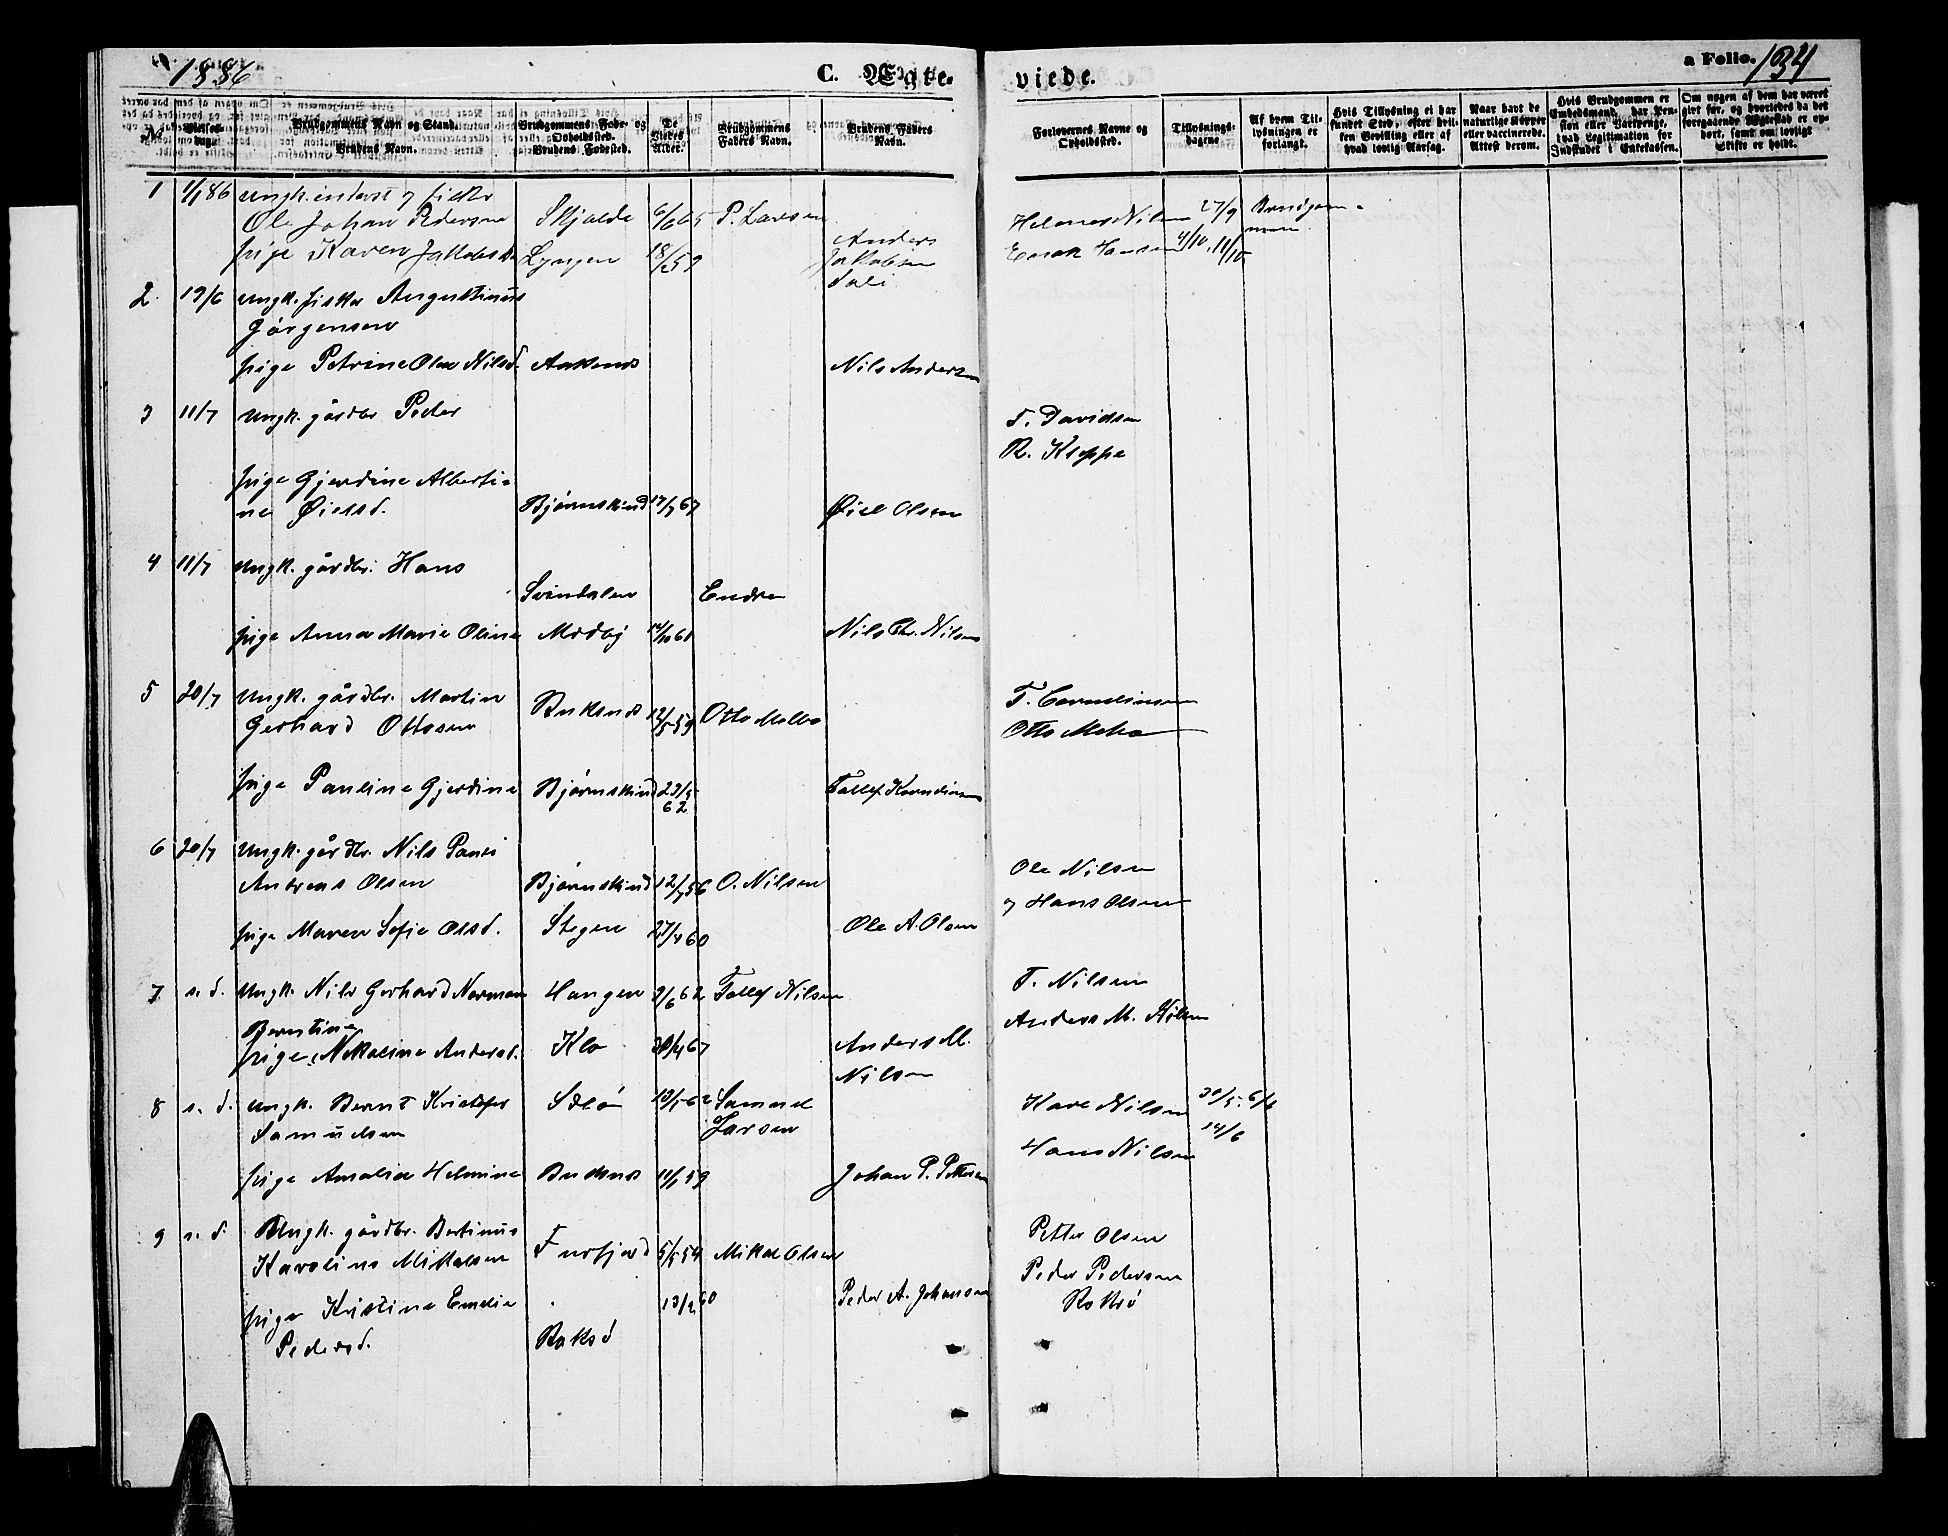 1886
C. Ægte-
viede.
a Folio. 134
No
Vielses-dag.
Brudgommens Navn og Stand.
Brudens Navn.
Brudgommens Føde- og Opholdssted.
Brudens Fødested.
De Viedes Alder.
Brudgommens Faders Navn.
Brudens Faders Navn.
Forlovernes Navne og Opholdssted.
Tillysnings-dagene
Af hvem Til-lysningen er forlangt.
Hvis Tillysning ei har fundet Sted, efter hvil-ken Bevilling eller af hvad lovlig Aarsag.
Naar havt de naturlige Kopper eller vaccinerede. Attest derom.
Hvis Brudgommen er Embedsmand, har Pen-sion eller Vartpenge, hvad Legitimation for Indskudet i Enkekassen.
Om nogen af dem har været gift før, og hvorledes da det foregaaende Ægteskab er op-hørt, samt om lovligt Skifte er holdt.
1 1/1 86 Ungk. inderst og fisker
Ole Johan Pedersen Skjelde 6/6 65 P. Larsen Helmer Nilsen 27/9 Brudgom-
men
pige Karen Jakobsd. Lyngen 18/ 59 Anders Jakobsen Enok Hansen 4/10, 11/10
2. 19/6 Ungk. fisker Augustinus
Jørgensen
pige Petrine Olea Nilsd. Nils Andersen
3 11/7 Ungk. gårdbr. Peder T. Davidsen
R. Kleppe
pige Gjerdine Alberti-
ne Øielsd. Bjørnskind 17/7 67 Øiel Olsen
4 11/7 Ungk. gårdbr. Hans
Svindalen Endre
pige Anna Marie Oline Medby 14/10 61 Nils Chr. Nilsen
5 20/7 Ungk. gårdbr. Martin
Gerhard Ottosen Buknes 12/5 59 Otto Melbo T. Cornelius
Otto Melbo
pige Pauline Gjerdine Bjørnskind 23/5 62 Tollef Korneliusen
6 20/7 Ungk. gårdbr. Nils
Andreas Olsen Bjørnskind 12/7 56 O. Nilsen Ole Nilsen
og Hans Olsen
pige Maren Sofie Olsd. Stegen 27/4 60 Ole A. Olsen
7 s. d. Ungk. Nils Gerhard Norman Haugen 2/6 62 Tollef Nilsen T. Nilsen
Berntine
pige Nikoline Andersd. Klo 30/4 67 Anders M. Nilsen Anders M. Nilsen
8 s. d. Ungk. Bernt Kristofer
Samuelsen Samuel Larsen Hans Nilsen 30/5. 6/6
14/6
pige Amalia Helmine Buknes 11/1 59 Johan P. Pettersen Hans Nilsen
9 s. d. Ungk. gårdbr. Bertinus
Karolius Mikalsen 5/5 54 Mikal Olsen Petter Olsen
pige Kristine Emelie
Pedersd. Roksø 13/2 60 Peder A. Johansen Peder Pedersen
Roksø